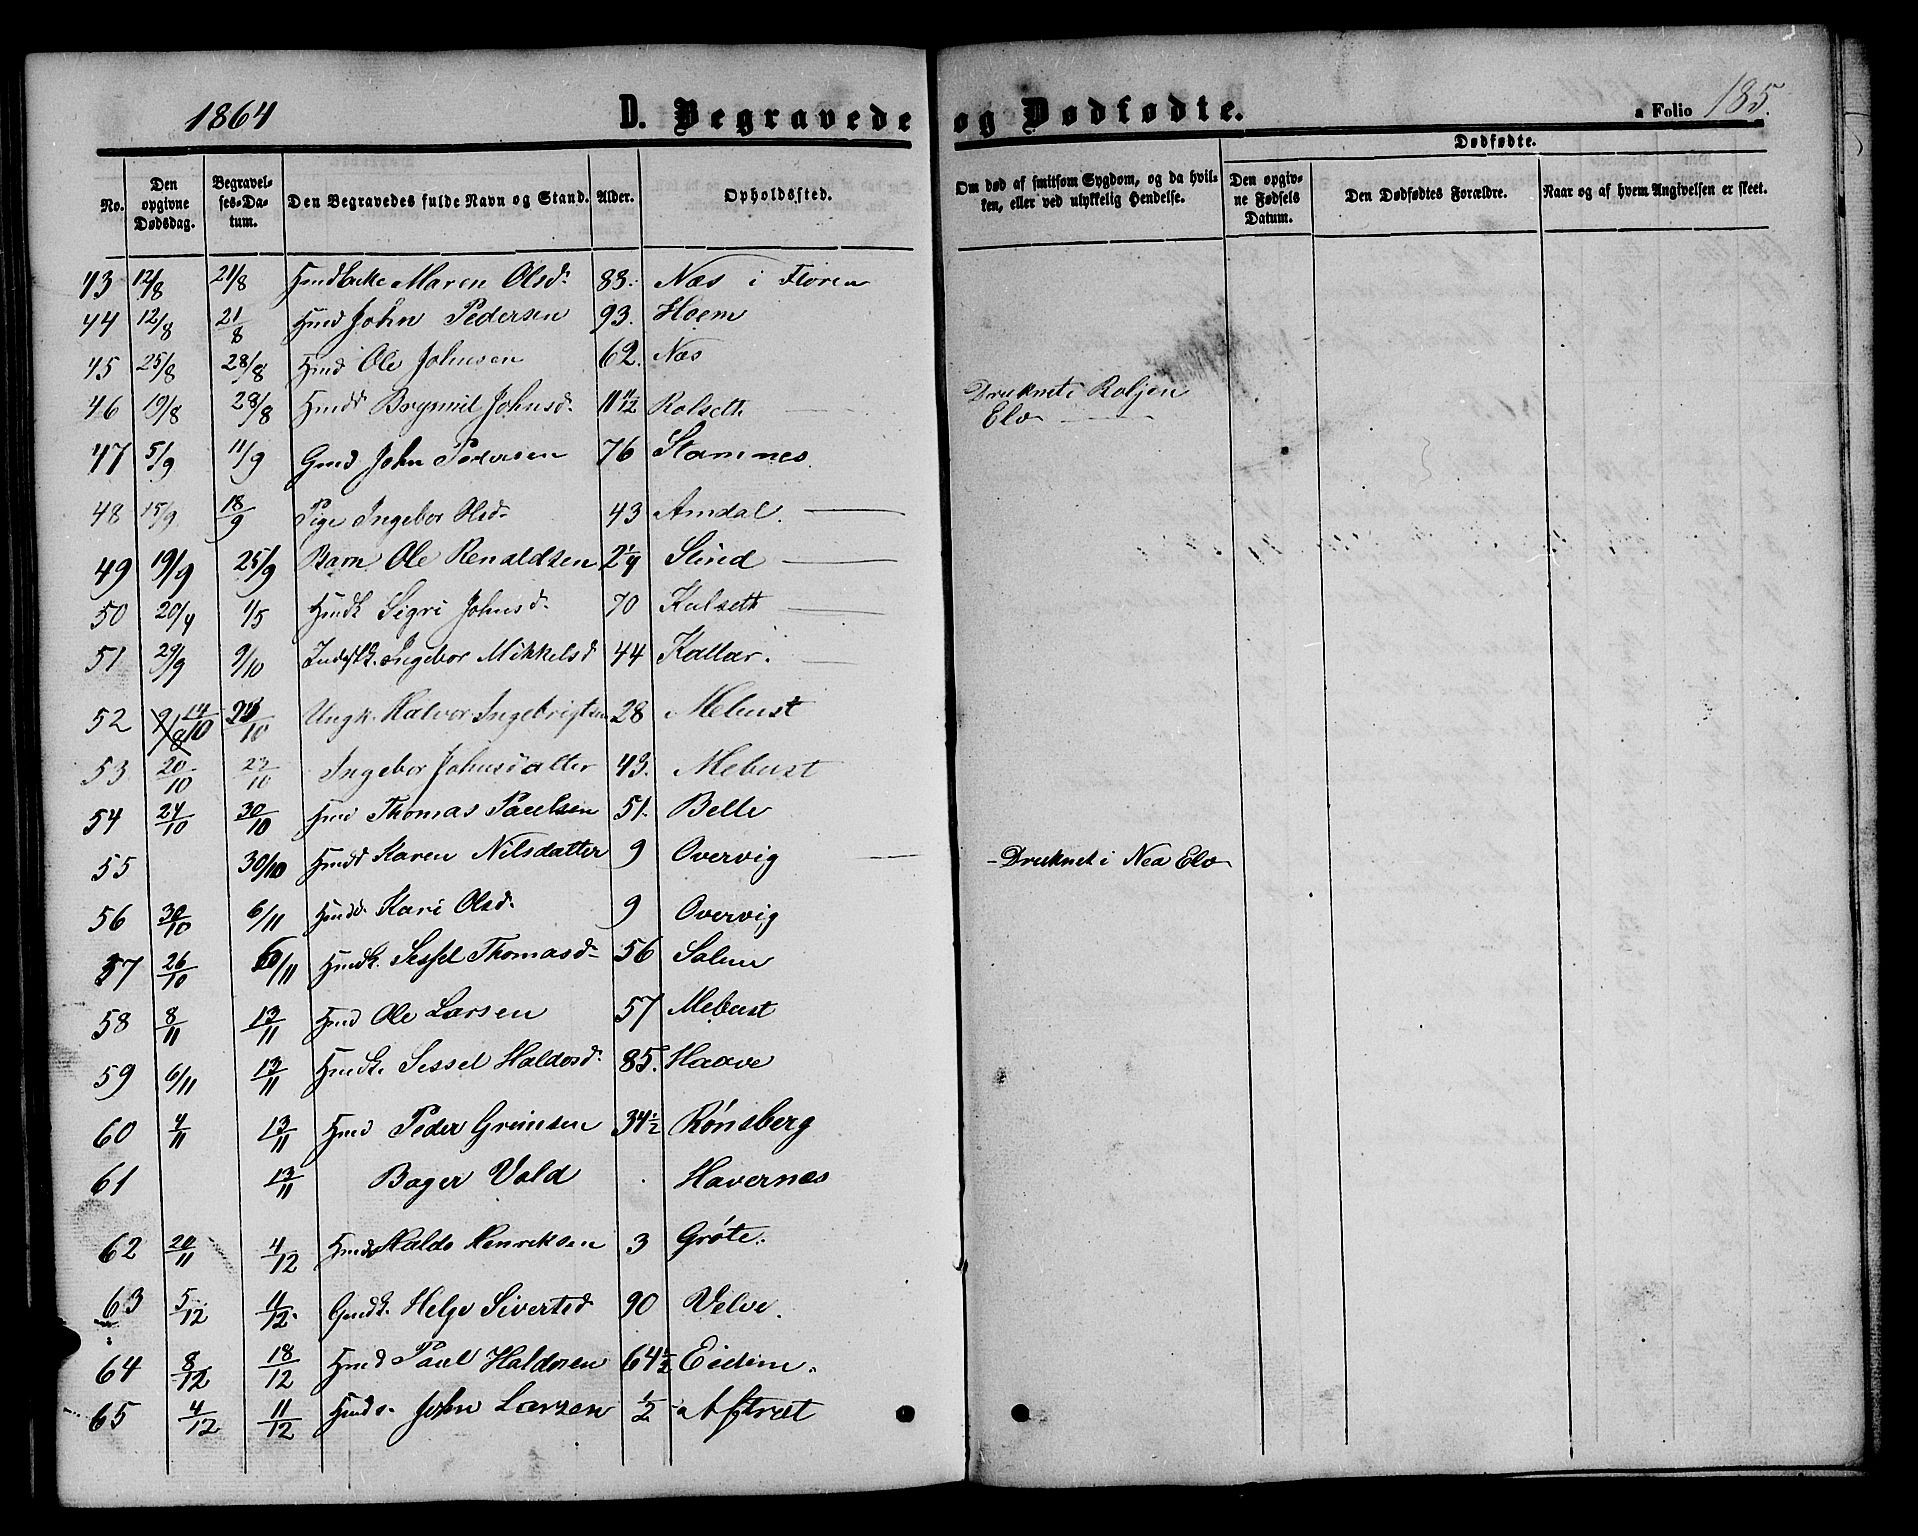 1864 D. Begravede og Dødfødte. a Folio 185.
No. Den opgivne Dødsdag. Begravelses-Datum. Den Begravedes fulde Navn og Stand. Alder. Opholdssted. Om død af smitsom Sygdom, og da hvilken, eller ved ulykkelig Hendelse. Dødfødte. Den opgivne Fødsels Datum. Den Dødfødtes Forældre. Naar og af hvem Angivelsen er skeet.
43 12/8 21/8 Maren Olsd. 83. Næs i Floren
44 12/8 21/8 Hmd John Pedersen 93. Hoem
45 25/8 28/8 Hmd Ole Johnsen 62. Næs
46 19/8 28/8 Hmdd Brynnil Johnsd. 11 11/12 Rolseth Druknet i Roljen Elv
47 5/9 11/9 Gmd John Pedersen 76 Stamnes
48 15/9 18/9 Pige Ingebor Olsd. 43 Amdal.
49 19/9 25/9 Barn Ole Renaldsen 2 1/4 Slind
50 20/4 1/5 Hmdk Sigri Johnsd. 70 Kulseth
51 29/9 9/10 Indstk. Ingebor Mikkelsd 44 Kallar.
52 14/10 23/10 Ungk. Halvor Ingebrigtsen 28 Mebust
53 20/10 23/10 Ingebor Johnsdatter 43. Mebust
54 24/10 30/10 Hmd Thomas Paulsen 51. Belle
55 30/10 Hmdd Karen Nilsdatter 9 Overvig Druknet i Nea Elv
56 30/10 6/11 Hmdd. Kari Olsd. 9 Overvig
57 26/10 6/11 Hmdk. Sissel Thomasd 56 Salem
58 8/11 13/11 Hmd Ole Larsen 57 Mebust
59 6/11 13/11 Hmdk. Sissel Haldosd. 85. Haave
60 4/11 13/11 Hmd Peder Grimsen 34 1/2 Rónsberg
61 13/11 Bager Vold Havernæs
62 20/11 4/12 Hmds Haldo Henriksen 3 Gróte.
63 5/12 11/12. Gmdk. Helge Sivertsd 90 Velve.
64 8/12 18/12 Hmd Paul Haldosen 64 1/2 Eidem.
65 4/12 11/12 Hmds. John Larsen 1/2 Aftræt